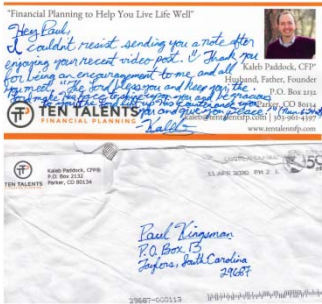 "Financial Planning to Help You Live Life Well"
Hey Paul,
I couldn't resist sending you a note after
enjoying your recent video post. Thank you
for being an encouragement to me, and all
you meet. "The Lord bless you and keep you; the
Lord make His face shine upon you and be gracious
to you; the Lord lift up His countenance upon
you and give you peace."
Kaleb
Kaleb Paddock, CFP®
Husband, Father, Founder
P.O. Box 2132
Parker, CO 80134
kaleb@tentalentsfp.com | 303-961-4397
www.tentalentsfp.com
TEN TALENTS
FINANCIAL PLANNING
TEN TALENTS
Kaleb Paddock, CFP®
P.O. Box 2132
Parker, CO 80134
11 APR 2020 PM 2 L
Paul Kingsman
P.O. Box 13
Taylors, South Carolina
29687
29687-000113